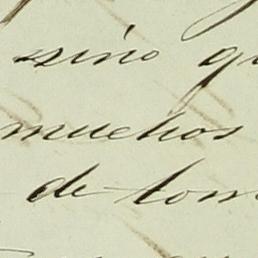 sino qu
muchos
de tom